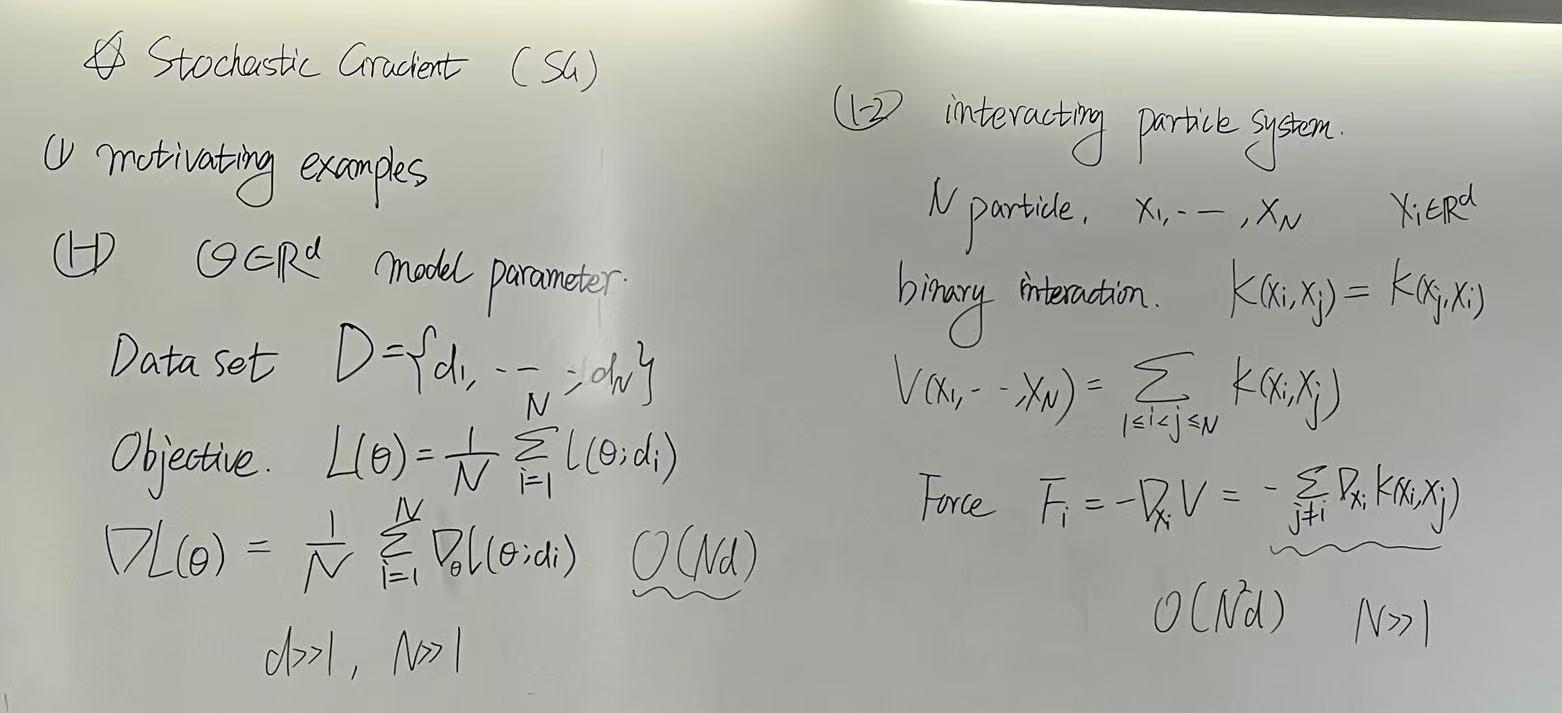 ☆ Stochastic Gradient (SG)
(1) motivating examples
(1-1) θ∈ℝᵈ model parameter.
Data set D={d₁, -- -, d_N}
Objective. L(θ) = 1/N ∑_{i=1}^{N} l(θ; dᵢ)
∇L(θ) = 1/N ∑_{i=1}^{N} ∇_θ l(θ; dᵢ) O(Nd)
d>>1, N>>1
(1-2) interacting particle system.
N particle, x₁, - -, x_N xᵢ∈ℝᵈ
binary interaction. K(xᵢ,xⱼ) = K(xⱼ,xᵢ)
V(x₁, - -, x_N) = ∑_{1≤i<j≤N} K(xᵢ,xⱼ)
Force Fᵢ = -∇_{xᵢ} V = - ∑_{j≠i} ∇_{xᵢ} K(xᵢ,xⱼ)
O(N²d) N>>1